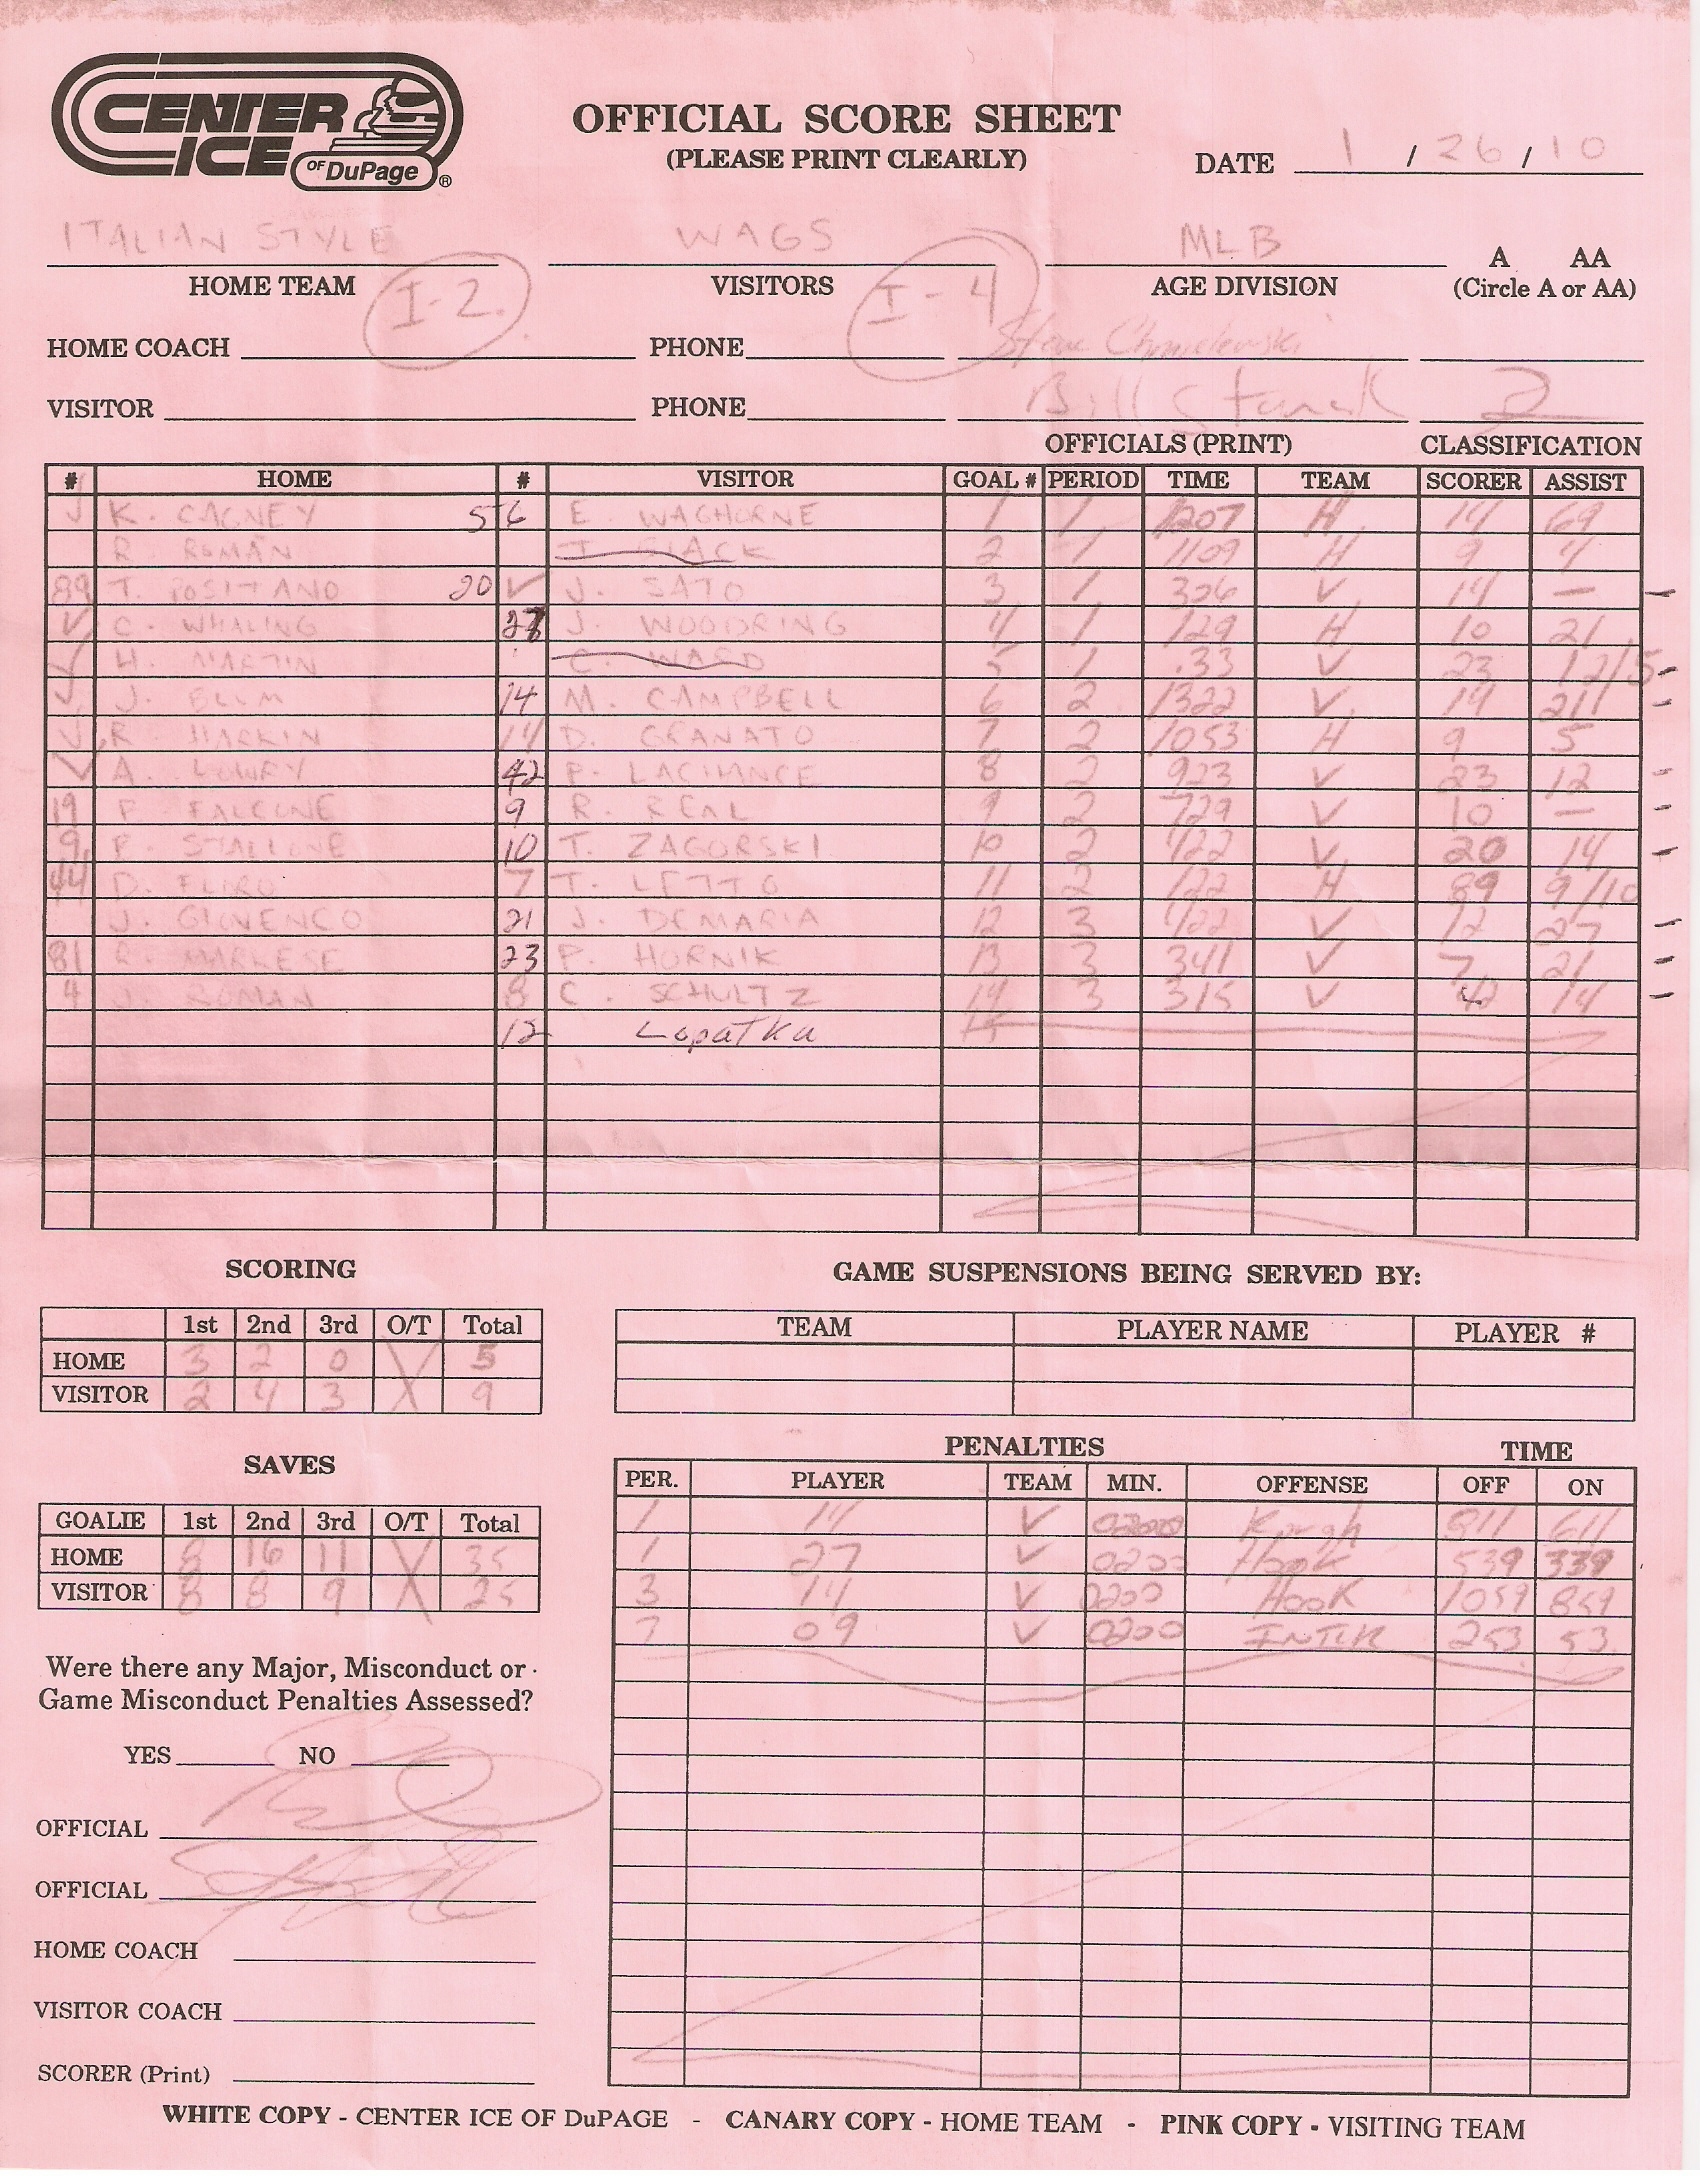 CENTER ICE OF DuPage ®
OFFICIAL SCORE SHEET
(PLEASE PRINT CLEARLY)
DATE 1 / 26 / 10
ITALIAN STYLE WAGS MLB A AA
HOME TEAM VISITORS AGE DIVISION (Circle A or AA)
I-2 I-4
HOME COACH PHONE Steve Chmielewski
VISITOR PHONE Bill 2
OFFICIALS (PRINT) CLASSIFICATION
# HOME # VISITOR GOAL # PERIOD TIME TEAM SCORER ASSIST
K. CAGNEY 56 E. WAGHORNE 1 1 1207 H 14 69
R. ROMAN 2 1 1109 H 9 4
89 T. POSITANO 20 J. SATO 3 1 326 V 14 —
C. WHALING 27 J. WOODRING 4 1 129 H 10 21
H. MARTIN C. WARD 5 1 .33 V 23 12/5
J. BLUM 14 M. CAMPBELL 6 2 1322 V 14 21
R. HARKIN 14 D. GRANATO 7 2 1053 H 9 5
A. LOWRY 42 P. LACHANCE 8 2 923 V 23 12
19 F. FALCONE 9 R. REAL 9 2 729 V 10 —
9 F. STALLONE 10 T. ZAGORSKI 10 2 422 V 20 14
44 D. FLIRO 7 T. LETTO 11 2 122 H 89 9/10
J. GIOVENCO 21 J. DEMARIA 12 3 V 12 27
81 R. MARKESE 23 P. HORNIK 13 3 341 V 7 21
4 J. ROMAN 8 C. SCHULTZ 14 3 315 V 42 14
12 Lopatka
SCORING
1st 2nd 3rd O/T Total
HOME 3 2 0 X 5
VISITOR 2 4 3 X 9
GAME SUSPENSIONS BEING SERVED BY:
TEAM PLAYER NAME PLAYER #
SAVES
GOALIE 1st 2nd 3rd O/T Total
HOME 8 16 11 X 35
VISITOR 8 8 9 X 25
PENALTIES TIME
PER. PLAYER TEAM MIN. OFFENSE OFF ON
1 14 V 0200 811 611
1 27 V 0200 Hook 539 339
3 14 V 0200 Hook 1059 859
09 V 0200 INTER 253 53
Were there any Major, Misconduct or
Game Misconduct Penalties Assessed?
YES NO
OFFICIAL
OFFICIAL
HOME COACH
VISITOR COACH
SCORER (Print)
WHITE COPY - CENTER ICE OF DuPAGE - CANARY COPY - HOME TEAM - PINK COPY - VISITING TEAM